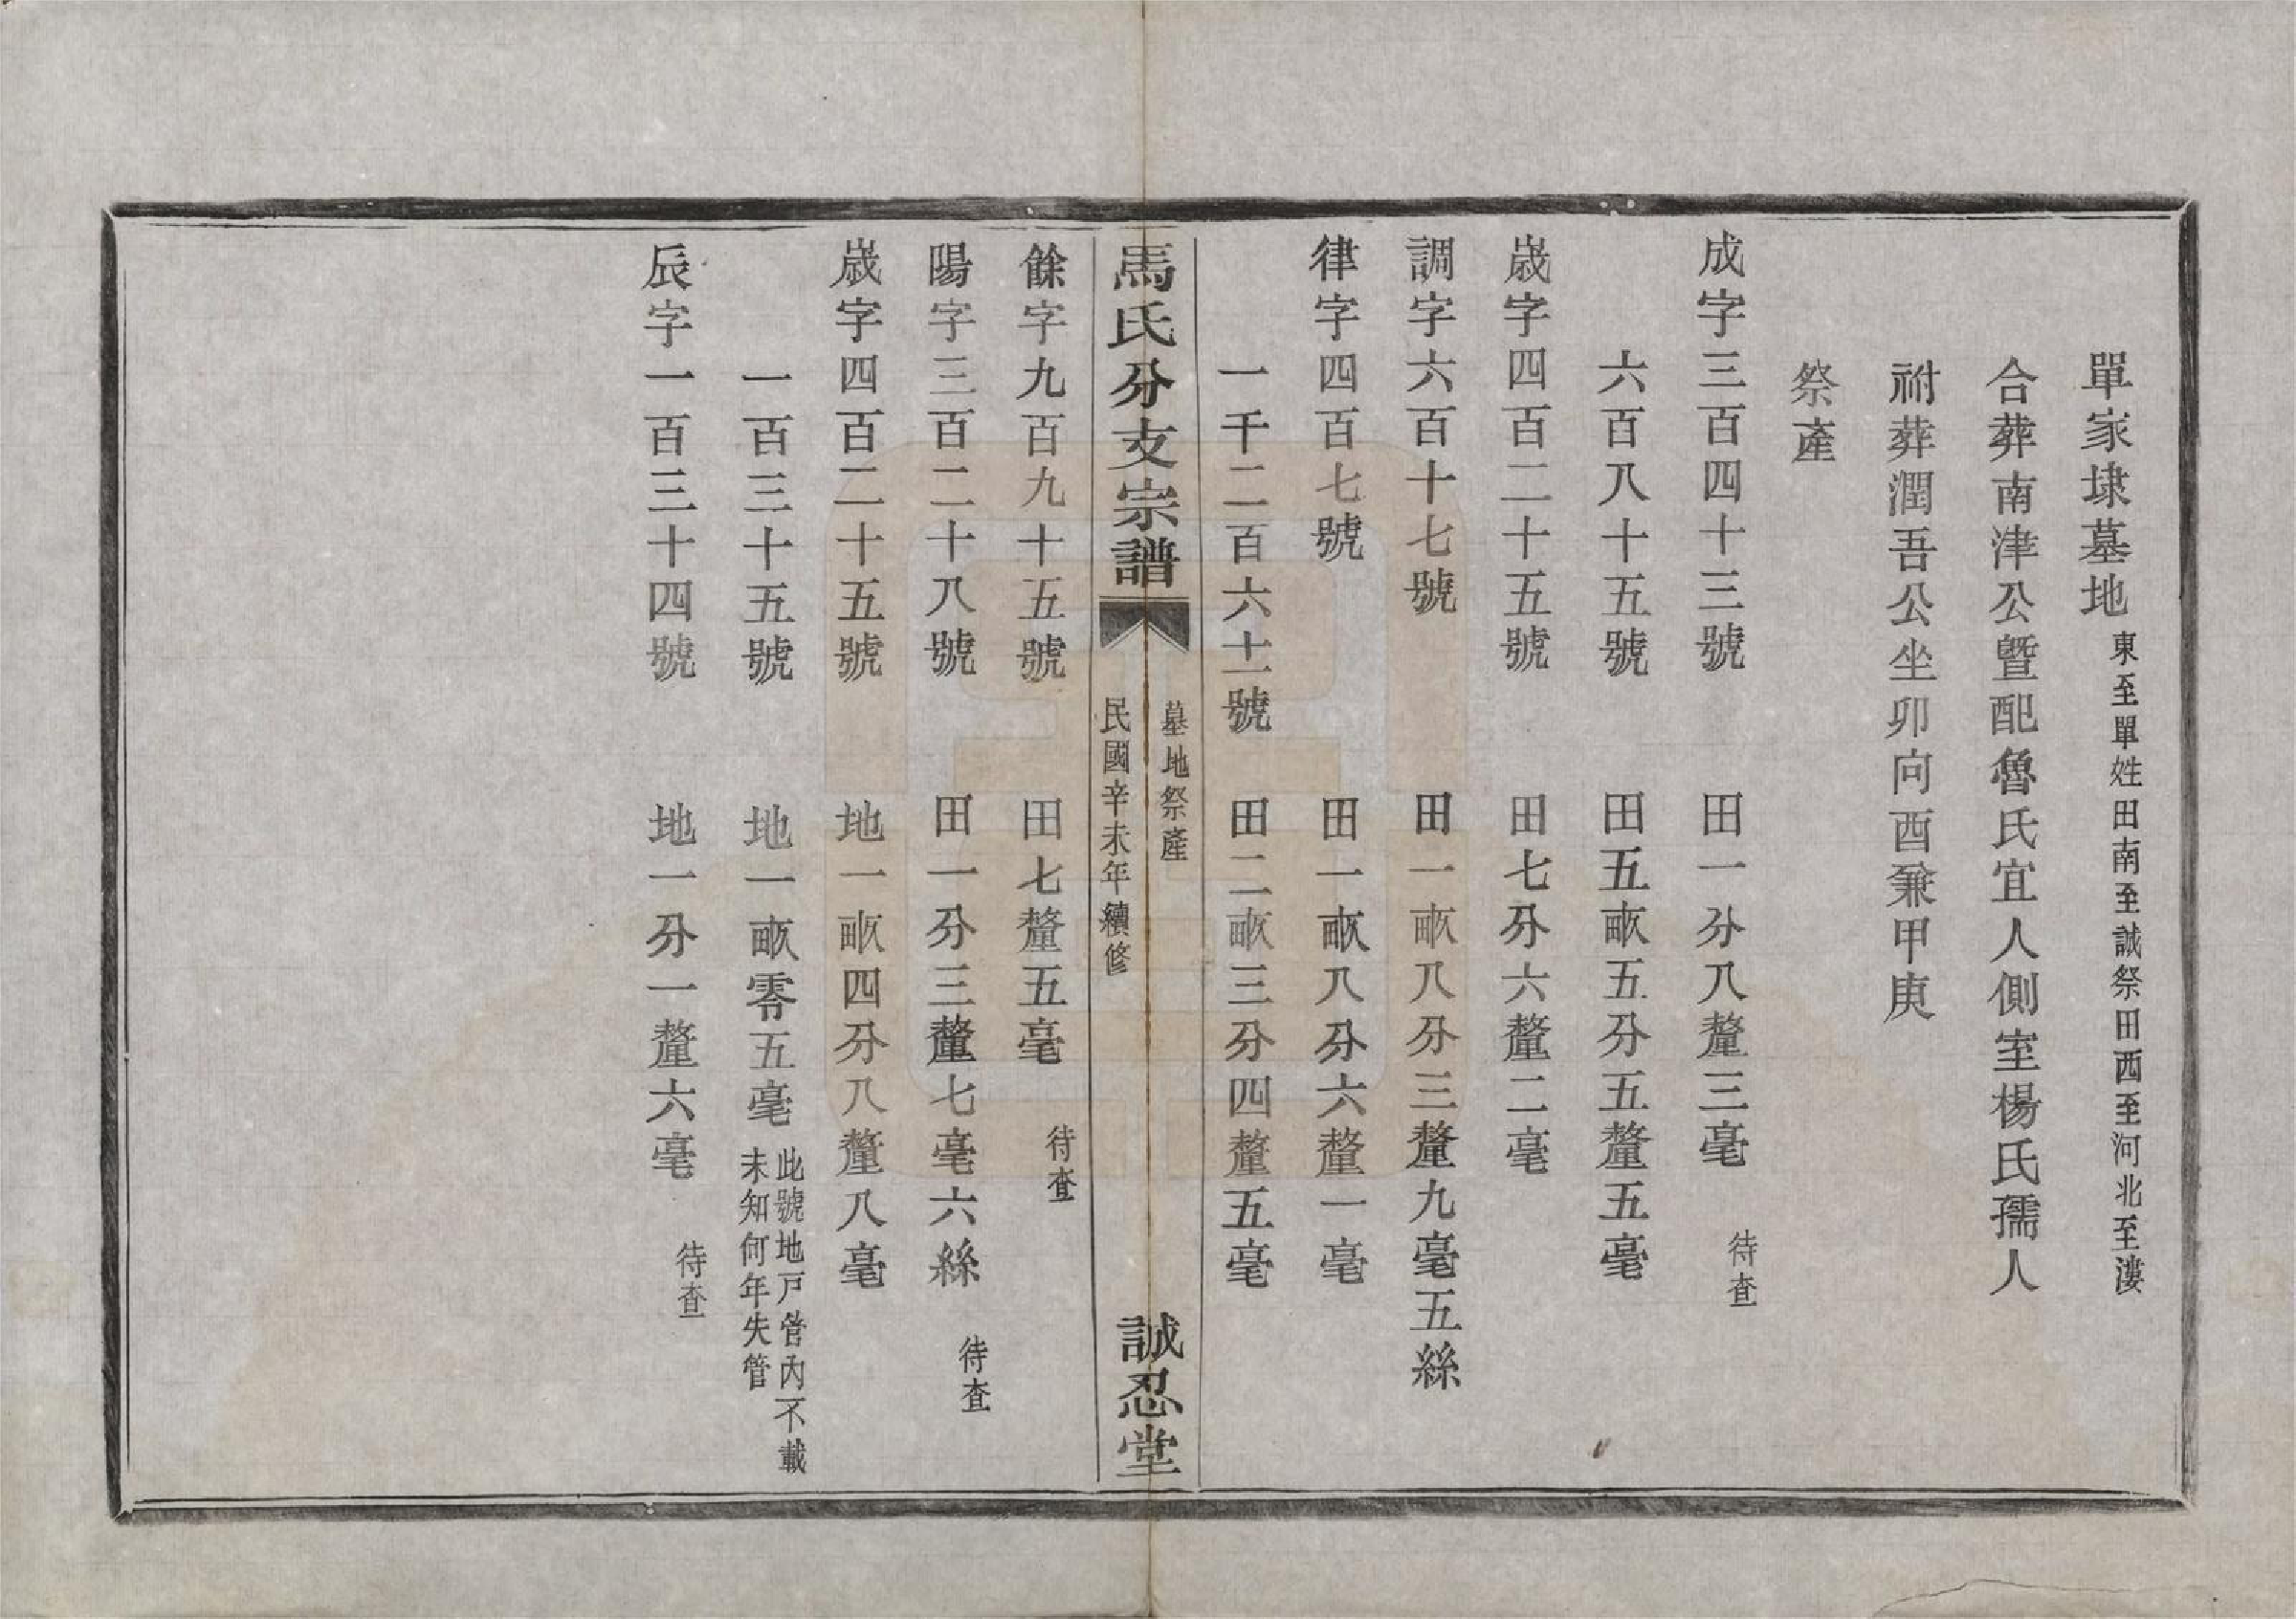 單家埭墓地東至單姓田南至誠祭田西至河北至漊
合葬南津公曁配魯氏宜人側室楊氏孺人
祔葬潤吾公坐卯向酉兼甲庚
祭產
成字三百四十三號 田一分八釐三毫 待查
六百八十五號 田五畝五分五釐五毫
歲字四百二十五號 田七分六釐二毫
調字六百十七號 田一畝八分三釐九毫五絲
律字四百七號 田一畝八分六釐一毫
一千二百六十一號 田二畝三分四釐五毫
馬氏分支宗譜
墓地祭產
民國辛未年續修
誠忍堂
餘字九百九十五號 田七釐五毫 待查
陽字三百二十八號 田一分三釐七毫六絲 待查
歲字四百二十五號 地一畝四分八釐八毫
一百三十五號 地一畝零五毫
此號地戸管內不載
未知何年失管
辰字一百三十四號 地一分一釐六毫 待查